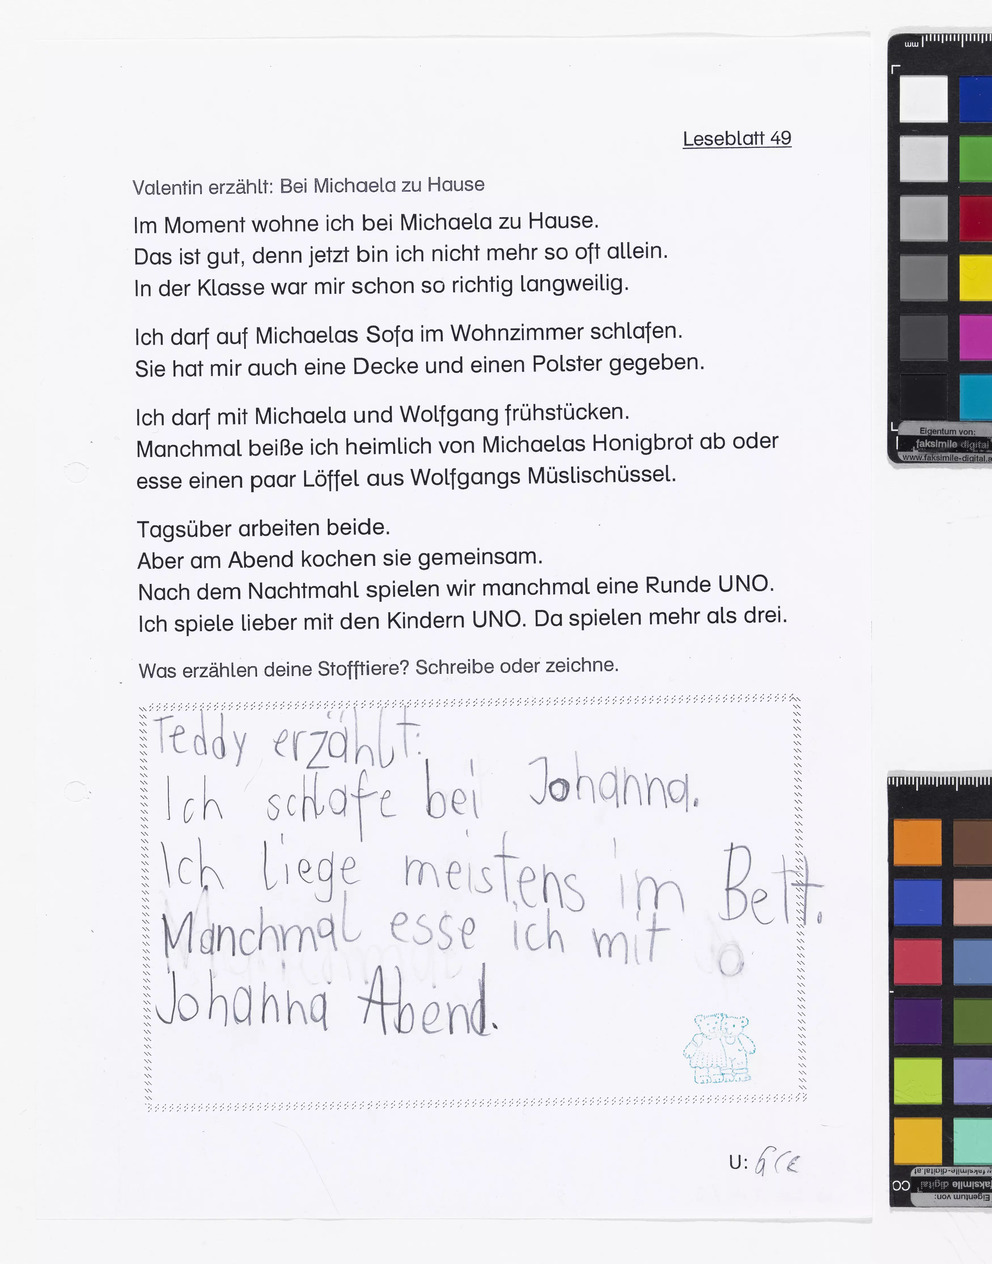 Leseblatt 49
Valentin erzählt: Bei Michaela zu Hause
Im Moment wohne ich bei Michaela zu Hause.
Das ist gut, denn jetzt bin ich nicht mehr so oft allein.
In der Klasse war mir schon so richtig langweilig.
Ich darf auf Michaelas Sofa im Wohnzimmer schlafen.
Sie hat mir auch eine Decke und einen Polster gegeben.
Ich darf mit Michaela und Wolfgang frühstücken.
Manchmal beiße ich heimlich von Michaelas Honigbrot ab oder
esse einen paar Löffel aus Wolfgangs Müslischüssel.
Tagsüber arbeiten beide.
Aber am Abend kochen sie gemeinsam.
Nach dem Nachtmahl spielen wir manchmal eine Runde UNO.
Ich spiele lieber mit den Kindern UNO. Da spielen mehr als drei.
Was erzählen deine Stofftiere? Schreibe oder zeichne.
Teddy erzählt:
Ich schlafe bei Johanna.
Ich liege meistens im Bett.
Manchmal esse ich mit
Johanna Abend.
U:
mm
Eigentum von:
faksimile digital
www.faksimile-digital.a
faksimile-digital.at
faksimile digital
Eigentum von:
CC